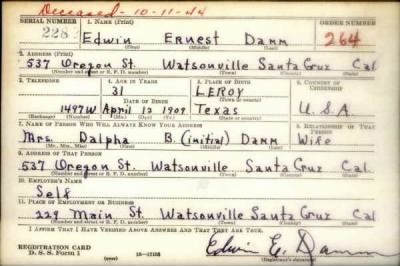 Deceased - 10-11-44
SERIAL NUMBER 1. NAME (Print) ORDER NUMBER
2283 Edwin Ernest Damm 264
(First) (Middle) (Last)
2. ADDRESS (Print)
537 Oregon St. Watsonville Santa Cruz Cal
(Number and street or R. F. D. number) (Town) (County) (State)
3. TELEPHONE 4. AGE IN YEARS 5. PLACE OF BIRTH 6. COUNTRY OF CITIZENSHIP
31 LEROY
DATE OF BIRTH (Town or county)
1497W April 12 1909 Texas U.S.A.
(Exchange) (Number) (Mo.) (Day) (Yr.) (State or country)
7. NAME OF PERSON WHO WILL ALWAYS KNOW YOUR ADDRESS 8. RELATIONSHIP OF THAT PERSON
Mrs. Dalpha B. (initial) Damm Wife
(Mr., Mrs., Miss) (First) (Middle) (Last)
9. ADDRESS OF THAT PERSON
537 Oregon St. Watsonville Santa Cruz Cal.
(Number and street or R. F. D. number) (Town) (County) (State)
10. EMPLOYER'S NAME
Self
11. PLACE OF EMPLOYMENT OR BUSINESS
229 Main St. Watsonville Santa Cruz Cal
(Number and street or R. F. D. number) (Town) (County) (State)
I AFFIRM THAT I HAVE VERIFIED ABOVE ANSWERS AND THAT THEY ARE TRUE.
REGISTRATION CARD
D. S. S. Form 1 16-17105 Edwin E. Damm
(Registrant's signature)